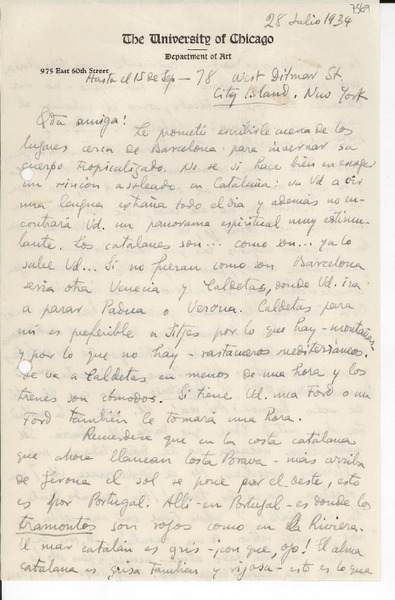 7569
28 Julio 1934
The University of Chicago
Department of Art
975 East 60th Street
Hasta el 15 de Sep - 78 West Ditmar St.
City Island. New York
Qda amiga! Le prometí escribirle acerca de los
lugares cerca de Barcelona para invernar su
cuerpo tropicalizado. No se si hace bien en escoger
un rincón asoleado en Cataluña: va Vd a oir
una lengua extraña todo el día y además no en-
contrará Vd. un panorama espiritual muy estimu-
lante. Los catalanes son... como son... ya lo
sabe Vd... Si no fueran como son Barcelona
sería otra Venecia y Caldetas, donde Vd. ira
a parar Padua o Verona. Caldetas para
mí es preferible a Sitjes por lo que hay - montañas
y por lo que no hay - rastacueros mediterráneos.
Se va a Caldetas en menos de una hora y los
trenes son cómodos. Si tiene Ud. una Ford o un
Ford también le tomará una hora.
Recuerdese que en la costa catalana
que ahora llaman Costa Brava - más arriba
de Girona el sol se pone por el oeste, esto
es por Portugal. Allí - en Portugal - es donde los
tramontos son rojos como en la Riviera.
El mar catalán es gris - ¡con que, ojo! El alma
catalana es grisa también y - esto es lo que